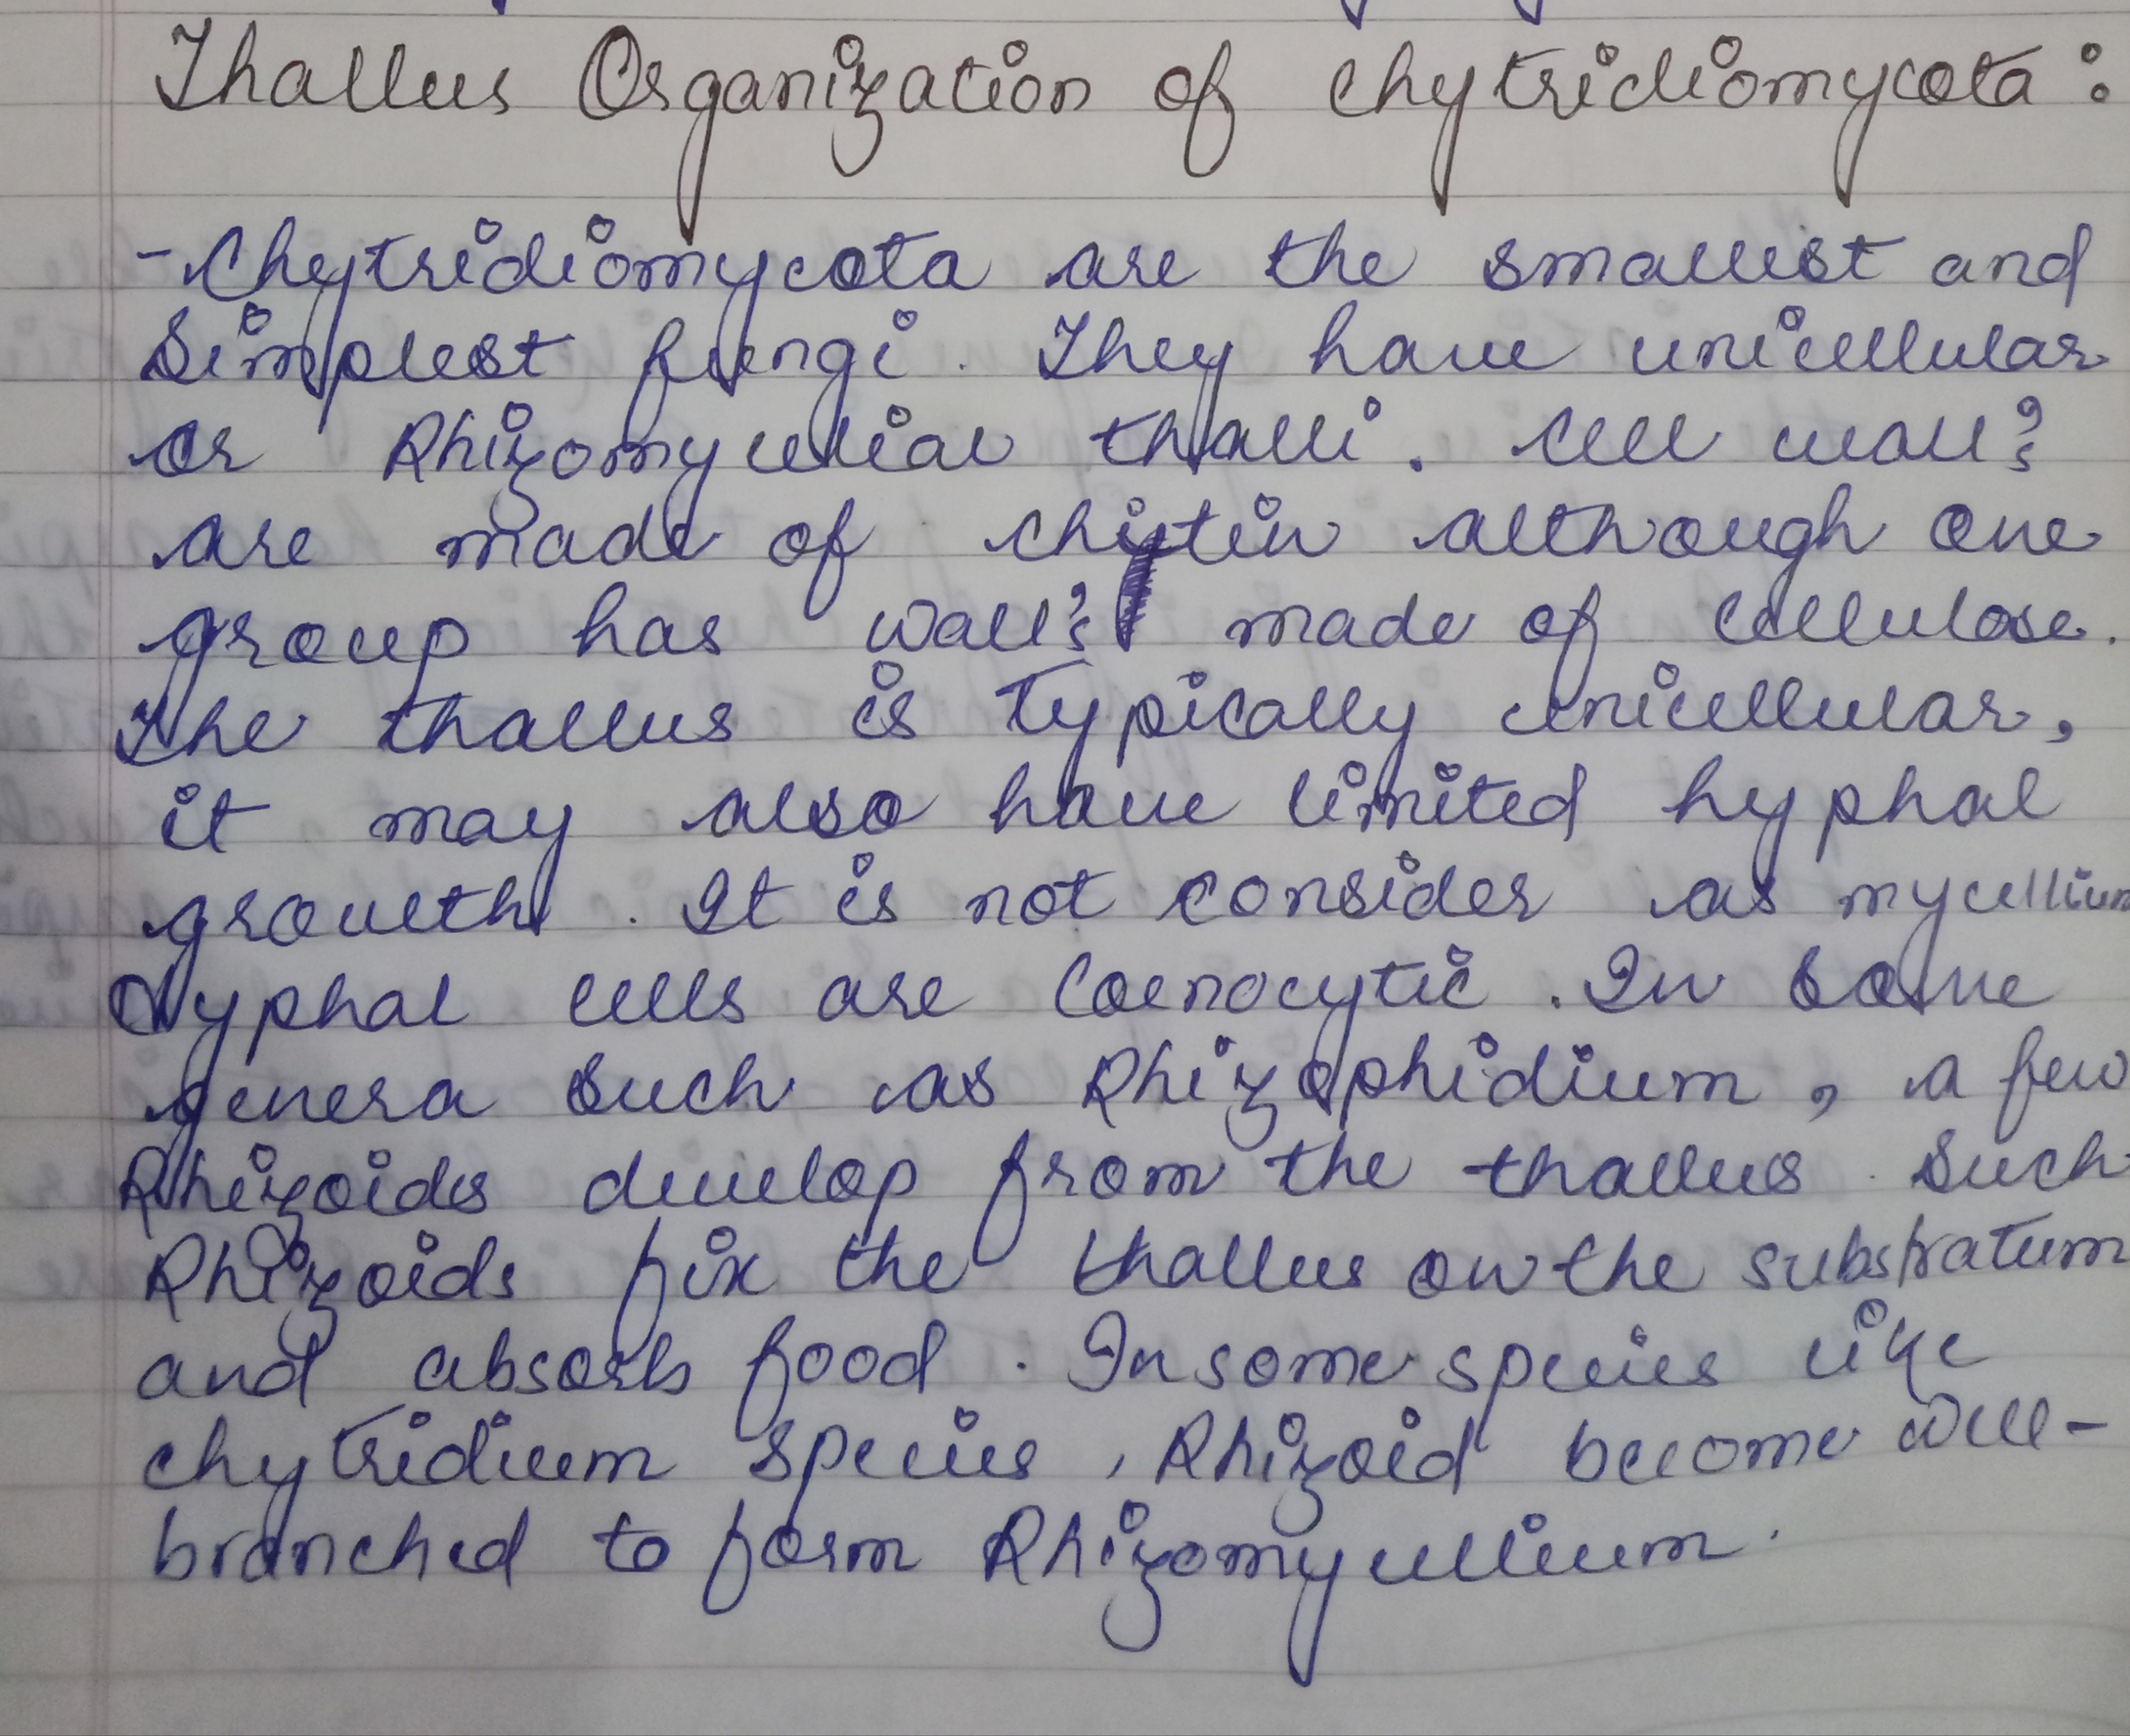 Thallus Organization of Chytridiomycota :
- Chytridiomycota are the smallest and
simplest fungi. They have unicellular
or Rhizomycelial thalli. Cell wall's
are made of chitin although one
group has wall's made of cellulose.
The thallus is typically unicellular,
it may also have limited hyphal
growth. It is not consider as mycellium
Hyphal cells are Coenocytic. In some
genera such as Rhizophidium, a few
Rhizoids develop from the thallus. Such
Rhizoids fix the thallus on the substratum
and absorb food. In some species like
chytridium species, Rhizoid become well-
branched to form Rhizomycellium.